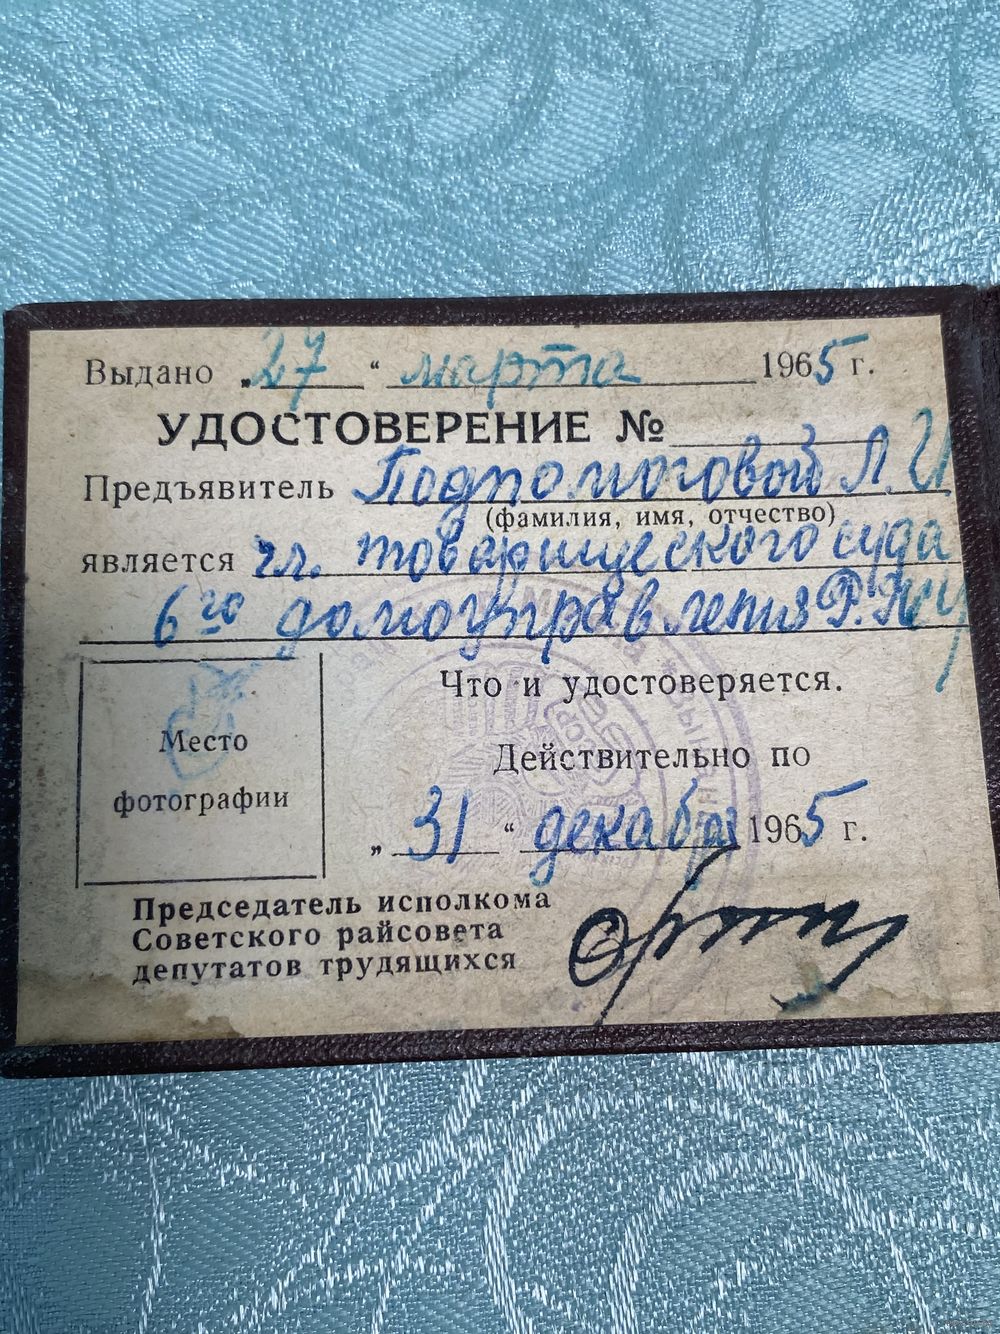 Выдано „27“ марта 1965 г.
УДОСТОВЕРЕНИЕ №
Предъявитель Подпомоговой Л. И
(фамилия, имя, отчество)
является чл. товарищеского суда
6го домоуправления РЖУ
Что и удостоверяется.
Место
фотографии
Действительно по
„31“ декабря 1965 г.
Председатель исполкома
Советского райсовета
депутатов трудящихся